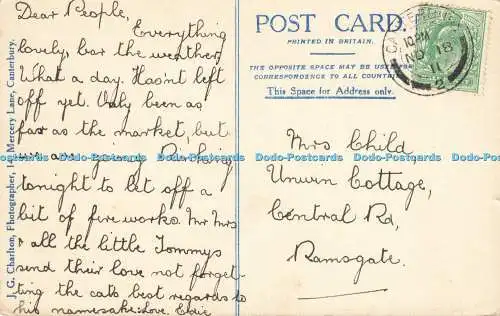 Dear People,
Everything
lovely, bar the weather,
What a day. Hasn't left
off yet. Only been as
far as the market, but
we are going
tonight to let off a
bit of fire works. Mr Mrs
& all the little Tommys
send their love not forget-
ting the cats best regards to
his namesake. Love. Edie
J. G. Charlton, Photographer, Mercery Lane, Canterbury.
POST CARD.
PRINTED IN BRITAIN.
THE OPPOSITE SPACE MAY BE USED
CORRESPONDENCE TO ALL COUNT
This Space for Address only.
Mrs Child
Unwin Cottage,
Central Rd,
Ramsgate.
Dodo-Postcards Dodo-Postcards Dodo-Postcards Dodo-Postcards Dodo-Postcards
Dodo-Postcards Dodo-Postcards Dodo-Postcards Dodo-Postcards Dodo-Postcards